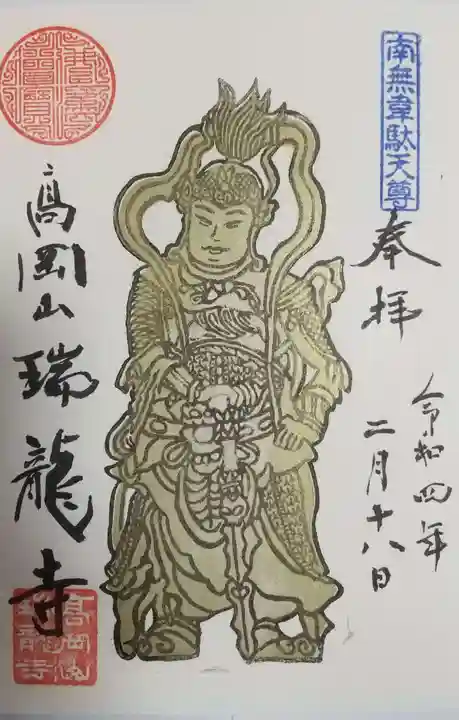 南無韋駄天尊
奉拝
令和四年
二月十八日
高岡山瑞龍寺
高岡山
瑞龍寺